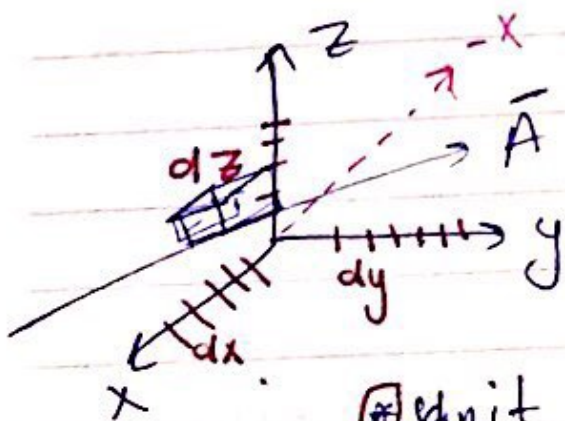 Z
-X
Ā
dz
y
dy
dx
X
* unit